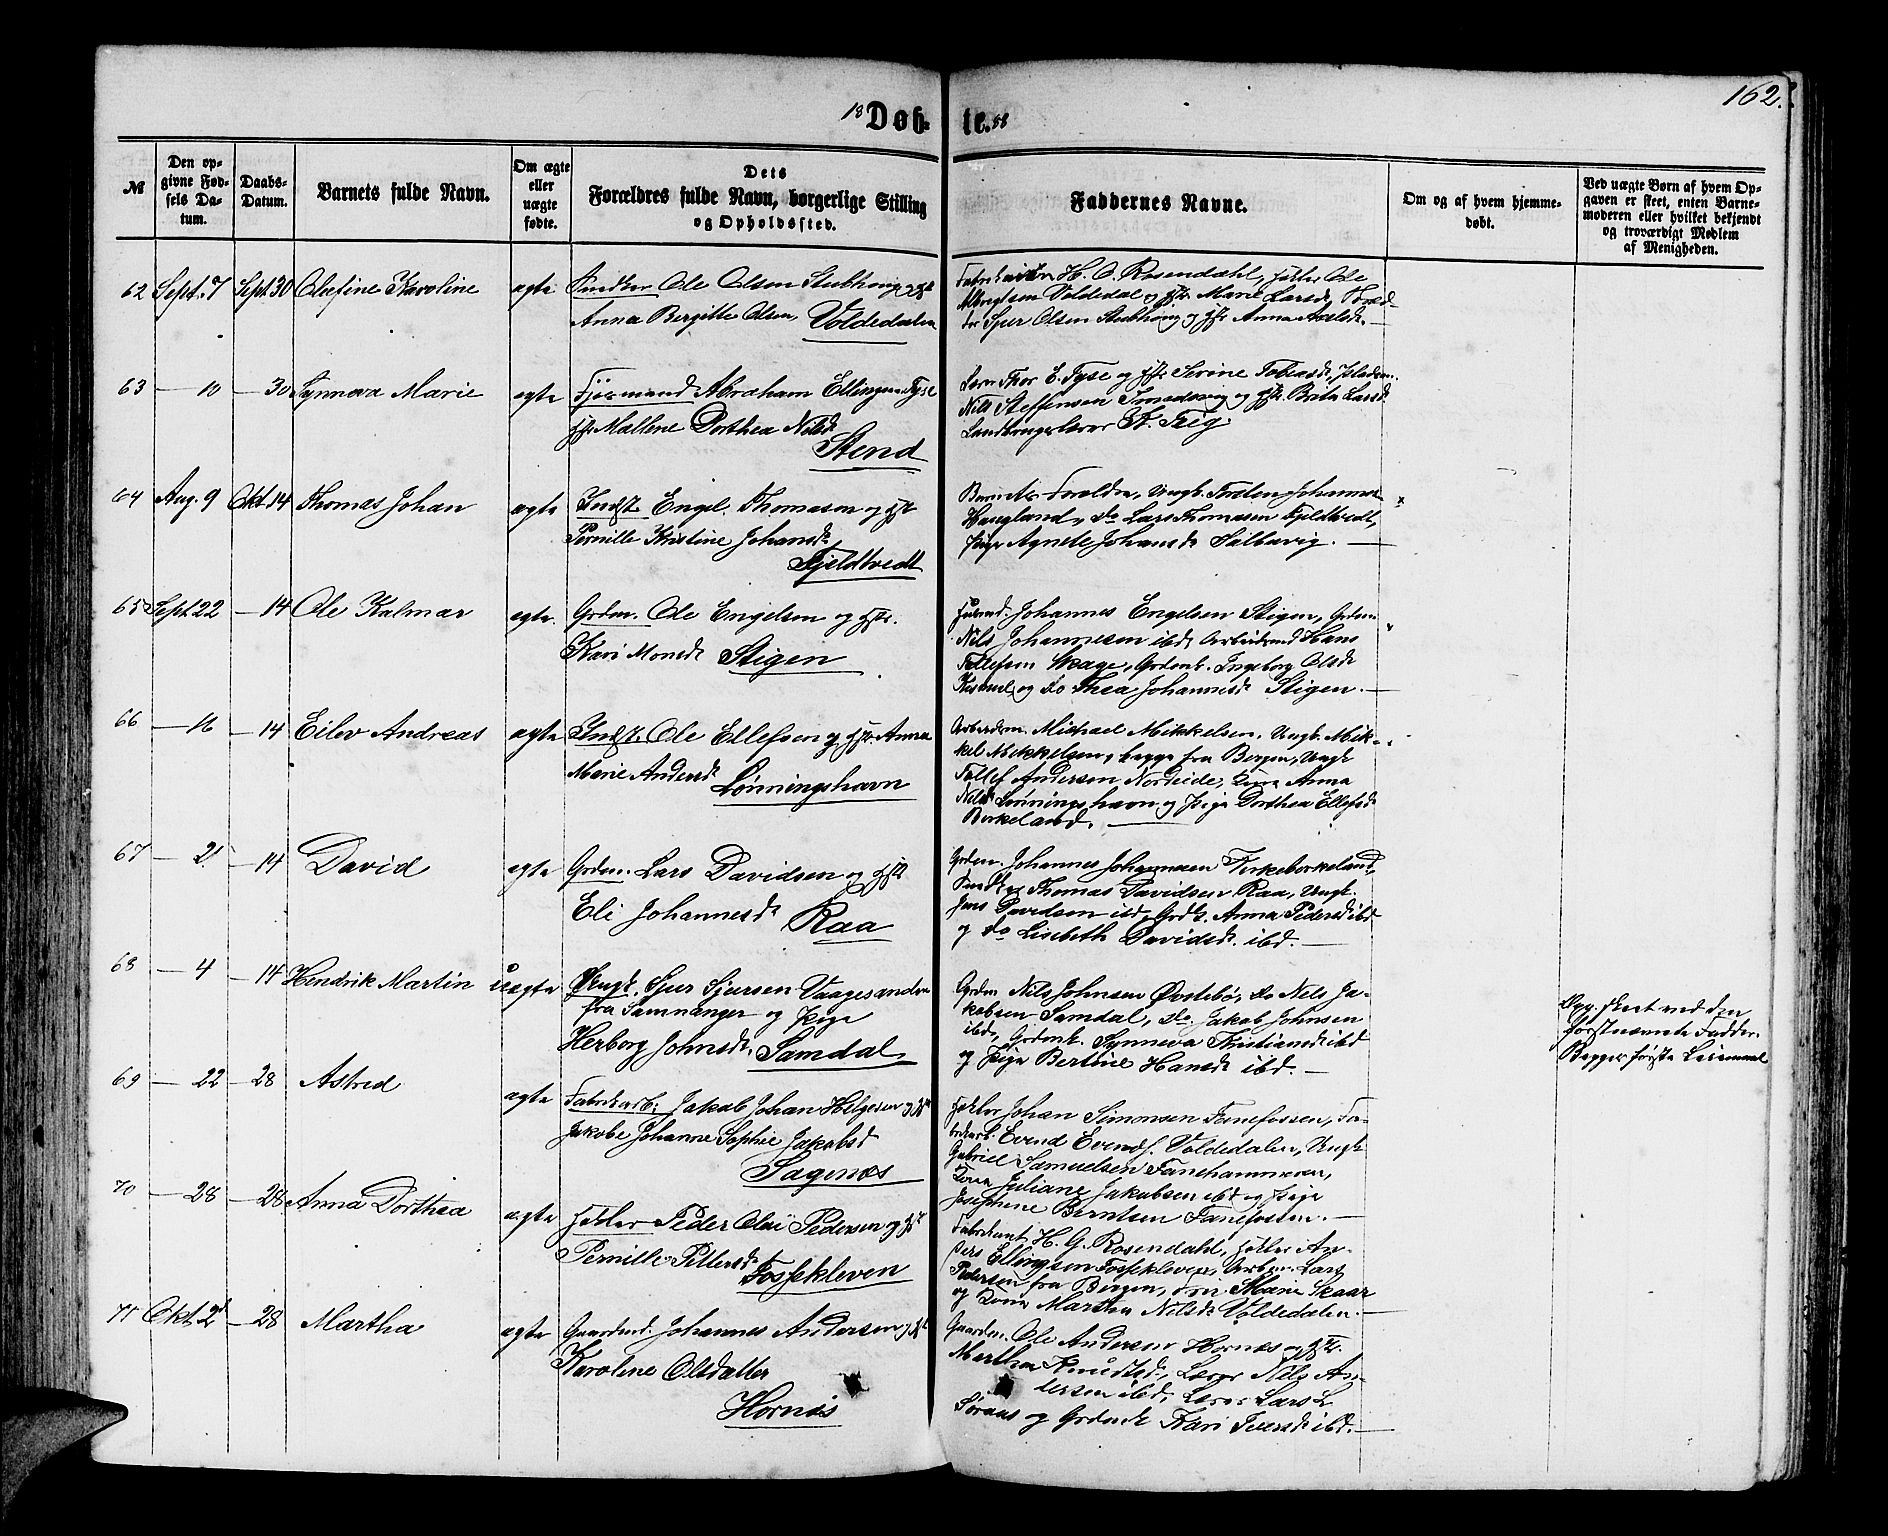 162.
18 Døb- te. 88
№
Den op-
givne Fød-
sels Da-
tum.
Daabs-
Datum.
Barnets fulde Navn.
Om ægte
eller
uægte
fødte.
Dets
Forældres fulde Navn, borgerlige Stilling
og Opholdssted.
Faddernes Navne.
Om og af hvem hjemme-
døbt.
Ved uægte Børn af hvem Op-
gaven er skeet, enten Barne-
moderen eller hvilket bekjendt
og troværdigt Medlem
af Menigheden.
62 Sept. 7 Sept. 30 Olufine Karoline ægte Snedker Ole Olsen Stubhoug og Hst
Anna Bergitte Olsen Voldedalen
H. O. Rosendahl, Ole
Albregtsen Voldedal og Hstr. Marie Larsd,
Sjur Olsen Stubhoug og Hstr Anna Axelsd. —
63 — 10 — 30 Synneva Marie ægte Fjøsmand Abraham Ellingsen Tyse
Hstr Mallene Dorthea Nilsd
Stend
Thor E. Tyse og Hstr Serine Tobiasd,
Nils Steffensen Smedsvig og Hstr. Brita Larsd
Landbrugslærer
64 Aug. 9 Okt. 14 Thomas Johan ægte Indst. Engel Thomasen og Hst
Pernille Kristine Johansd
Fjeldtvedt
Barnets Forældre, Ungk. Torsten Johannes.
Haugland, Do Lars Thomasen Fjeldtvedt,
Pige Agnete Johansd Salbuvig. —
65 Sept 22 — 14 Ole Kalmar ægte. Grdm. Ole Engelsen og Hstr.
Kari Monsd Stigen
Johannes Engelsen Stigen, Grdm
Nils Johannesen ibd, Arbeidsmd Hans
Tollefsen Skage, Grdmk. Ingeborg Olsd
og do Thea Johannesd Stigen. —
66 — 16 — 14 Eilev Andreas ægte Indst. Ole Ellefsen og Hstr. Anna
Marie Andersd
Lønningshavn
Arbeidsm. Michael Mikkelsen, Ungk. Mik-
kel Mikkelsen, begge fra Bergen, Ungk
Tollef Andersen Nordeide, Kone Anna
Nilsd Lønningshavn og Pige Dorthea Ellefsd
Birkeland. —
67 — 21 — 14 David ægte Grdm. Lars Davidsen og Hstr
Eli Johannesd Raa
Grdm. Johannes Johannesen Kirkebirkeland,
Thomas Davidsen Raa, Ungk.
Jens Davidsen ibd, Grdk. Anna Pedersd ibd
og do Lisebeth Davidsd. ibd. —
68 — 4 — 14 Hendrik Martin uægte Ungk. Sjur Sjursen Vaagesanden
fra Samnanger og Pige
Herborg Johnsd, Samdal
Grdm Nils Johnsen Øvstebø, Do Nels Ja-
kobsen Samdal, Do. Jakob Johnsen
ibd, Grdmk. Synneva Kristiansd ibd
og Pige Bertine Hansd ibd. —
Opg. skeet ved den
førstnævnte Fadder.
Begges første Leiermaal
69 — 22 — 28 Astrid ægte Fabrikarb: Jakob Johan Helgesen og Hst
Jakobe Johanne Sophie Jakobsd
Sagenæs
Johan Simonsen Fanefossen, Fa-
brikarb. Evind Evinds. Voldedalen, Ungk
Gabriel Samuelsen Fanehammeren,
Kone Juliane Jakobsen ibd og Pige
Josephine Berntsen Fanefossen. —
70 — 28 — 28 Anna Dorthea ægte Peder Olai Pedersen og Hst
Pernille Pettersd
Fossekleven
Fabrikant H. G. Rosendahl, An-
ders Ellingsen Fossekleven, Arbm. Lars
Pedersen fra Bergen, Marie Skaar
og Kone Martha Nilsd Voldedalen. —
71 Okt. 2d — 28 Martha ægte Gaardmd. Johannes Andersen og Hst
Karoline Olsdatter
Hornes
Gaardm. Ole Andersen Hornes og Hstr.
Martha Knudtsd, Lærer Nils An-
dersen ibd, Lærer Lars L
Søraas og Grdmk Kari Iversd ibd. —